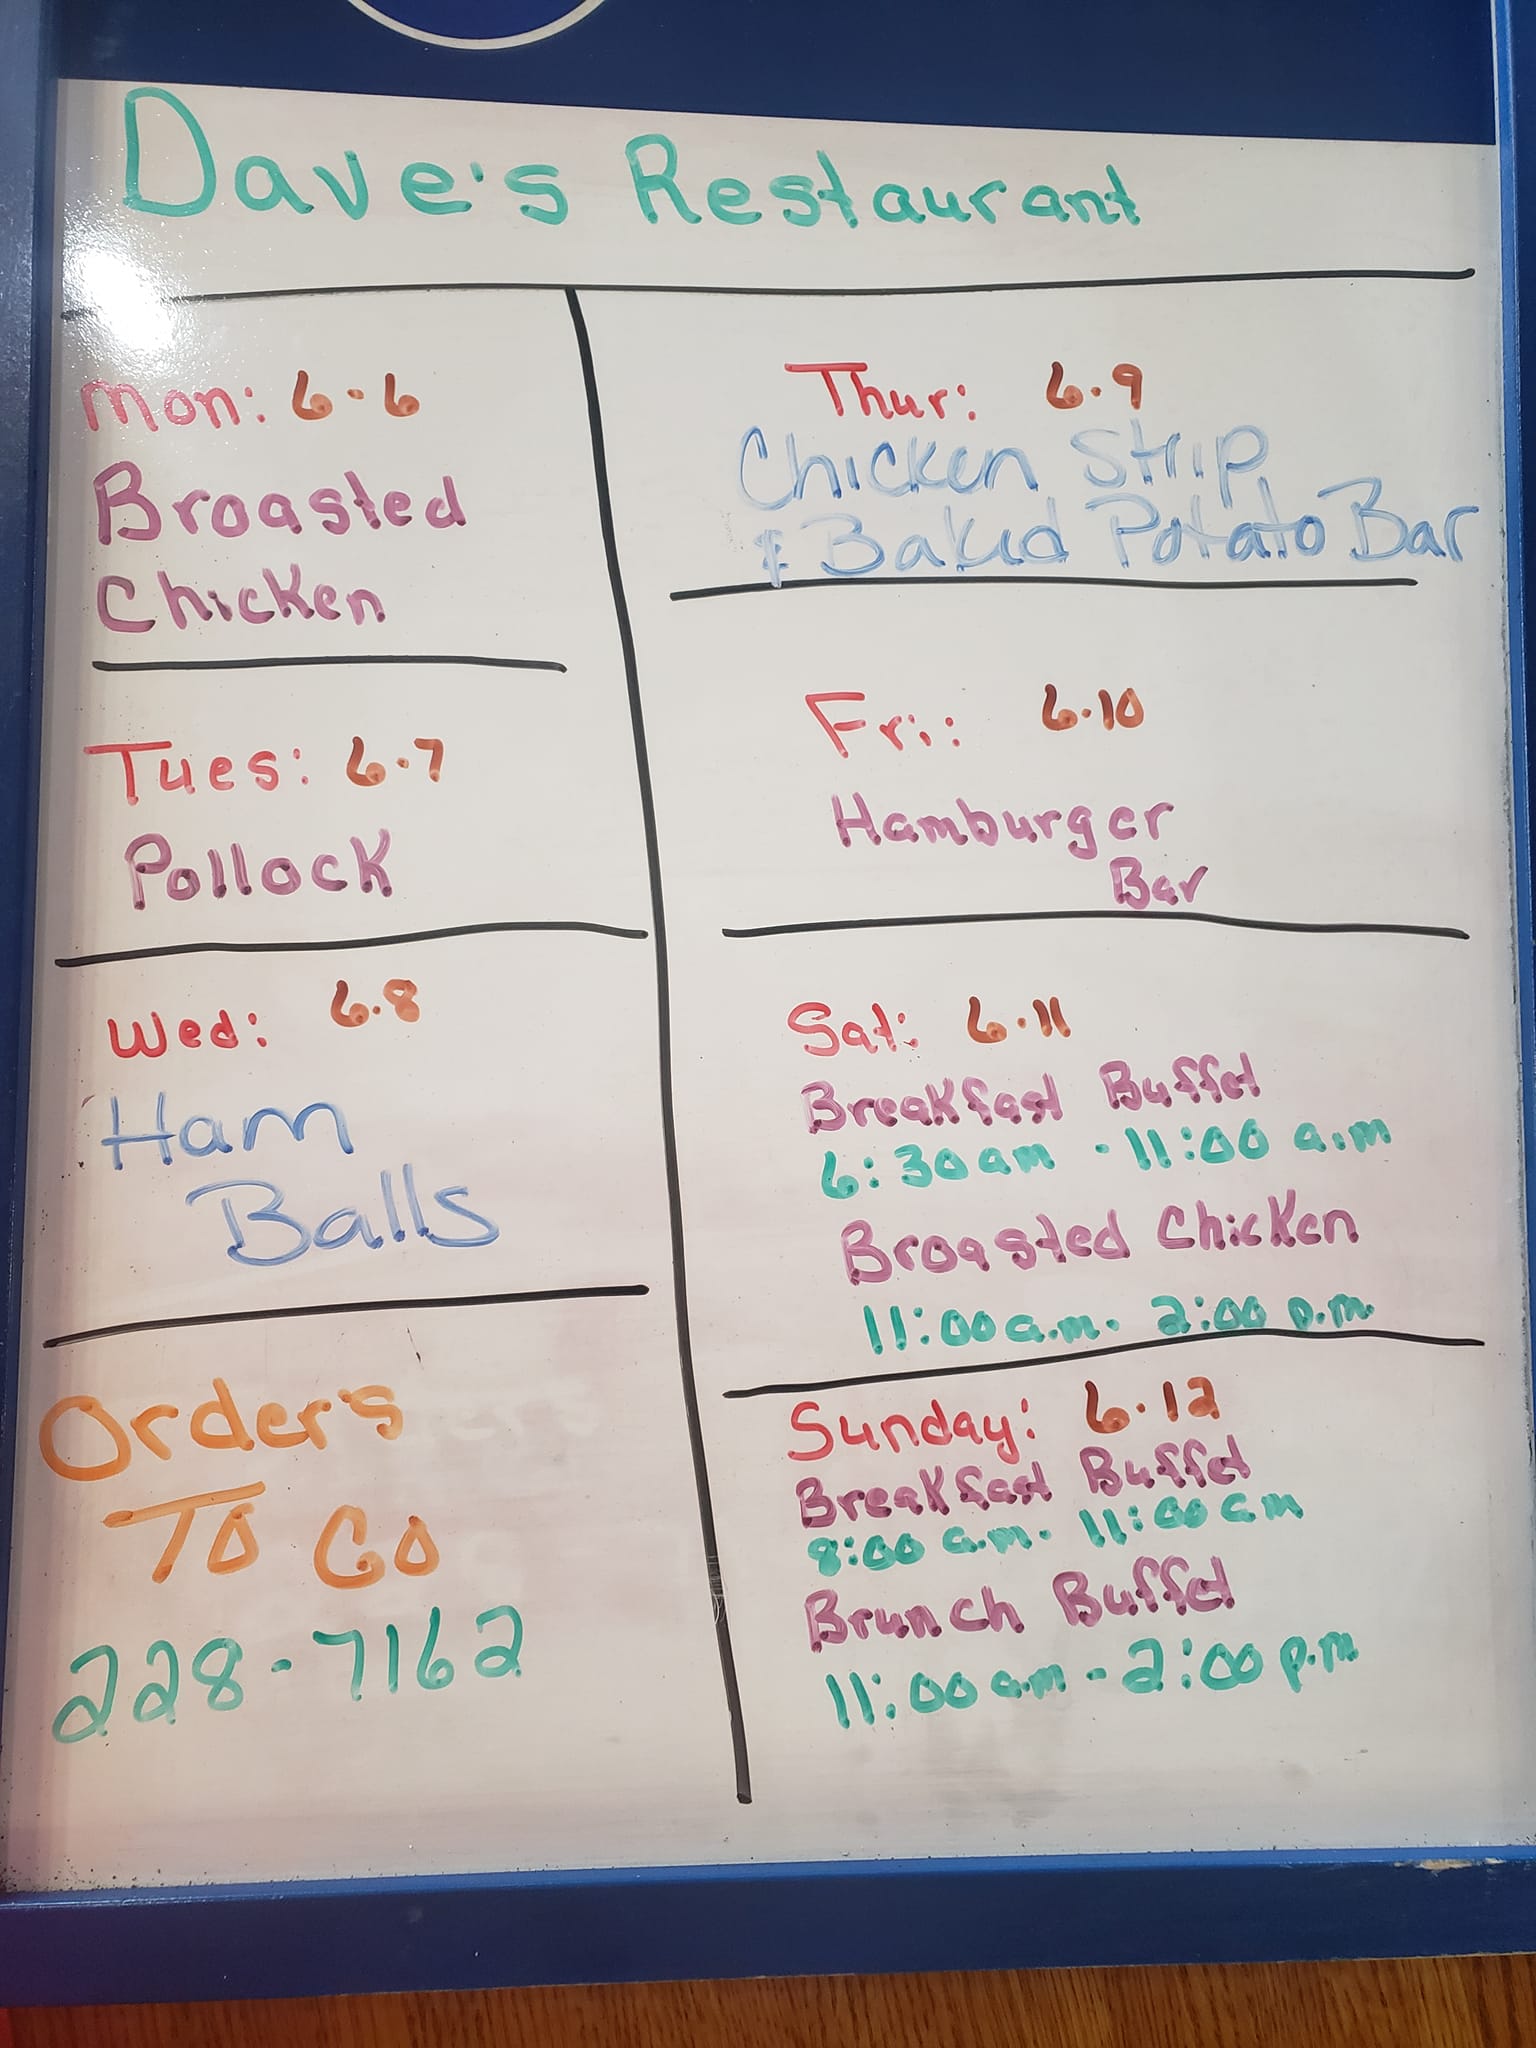 Dave's Restaurant
Mon: 6-6
Broasted
Chicken
Tues: 6.7
Pollock
Wed: 6.8
Ham
Balls
Orders
To Go
228-7162
Thur: 6.9
Chicken Strip
& Baked Potato Bar
Fri: 6.10
Hamburger
Bar
Sat: 6.11
Breakfast Buffet
6:30am - 11:00 a.m
Broasted Chicken
11:00 a.m. 2:00 p.m.
Sunday: 6.12
Breakfast Buffet
8:00 a.m. 11:00 am
Brunch Buffet
11:00 a.m - 2:00 p.m